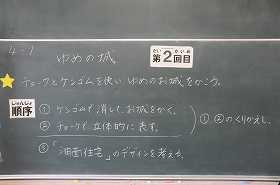 4-1
ゆめの城
だい かいめ
第2回目
チョークとケシゴムを使い ゆめのお城をかこう。
じゅんじょ
順序
① ケシゴムで消してお城をかく。
② チョークで立体的に表す。
①②のくりかえし。
③「油面住宅」のデザインを考える。